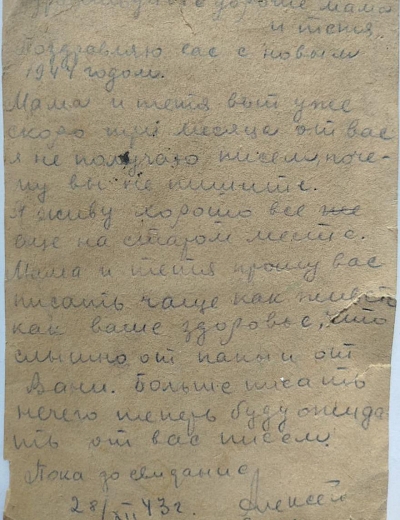 дорогие мама
и тетя.
Поздравляю вас с новым
1944 годом.
Мама и тетя вот уже
скоро три месяца от вас
я не получаю писем, поче-
му вы не пишите.
Я живу хорошо все же
еще на старом месте.
Мама и тетя прошу вас
писать чаще как живете
как ваше здоровье, что
слышно от папы и от
Вани. Больше писать
нечего теперь буду ожида
ть от вас писем.
Пока до свидание
28/XII 43 г. Алексей